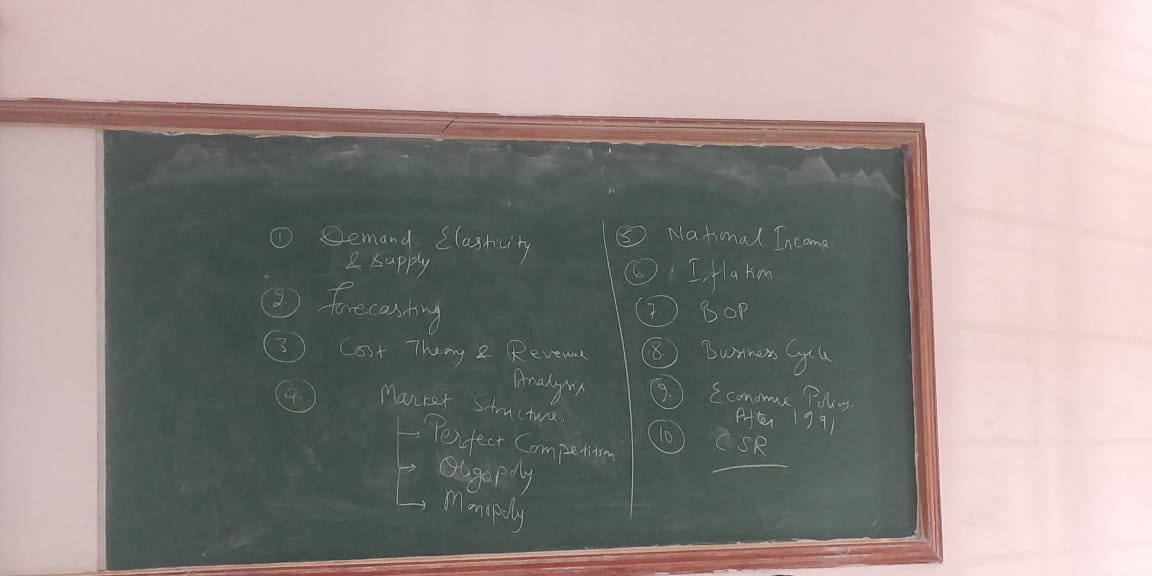 ① Demand, Elasticity
& Supply
② Forecasting
③ Cost Theory & Revenue
Analysis
④ Market Structure.
→ Perfect Competition
→ Oligopoly
→ Monopoly
⑤ National Income
⑥ Inflation
⑦ BOP
⑧ Business Cycle
⑨ Economic Policy
After 1991
⑩ CSR